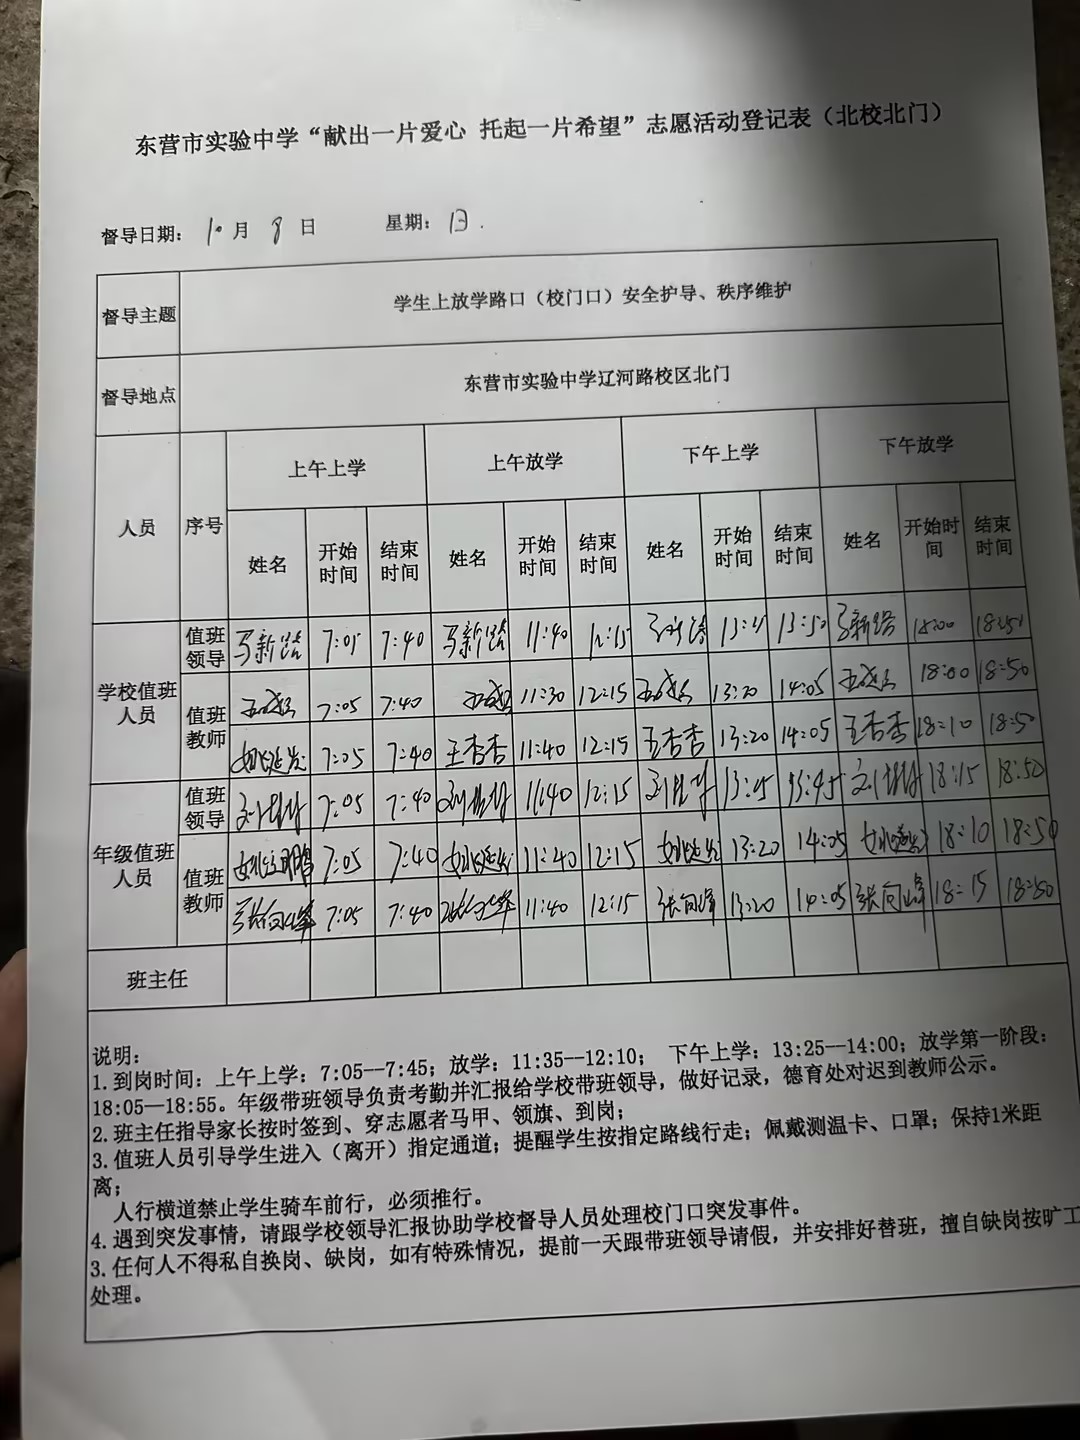 东营市实验中学“献出一片爱心 托起一片希望”志愿活动登记表（北校北门）
督导日期： 10月 8 日 星期：日.
督导主题 学生上放学路口（校门口）安全护导、秩序维护
督导地点 东营市实验中学辽河路校区北门
人员 序号 上午上学 上午放学 下午上学 下午放学
姓名 开始时间 结束时间 姓名 开始时间 结束时间 姓名 开始时间 结束时间 姓名 开始时间 结束时间
学校值班人员 值班领导 马新路 7:05 7:40 马新路 11:40 12:15 13:50 马新路 18:00
值班教师 7:05 7:40 11:30 12:15 13:20 14:05 18:00 18:50
姚延发 7:05 7:40 王杏杏 11:40 12:15 王杏杏 13:20 14:05 王杏杏 18:10 18:50
年级值班人员 值班领导 7:05 7:40 11:40 12:15 18:15 18:50
值班教师 7:05 7:40 11:40 12:15 13:20 14:05 18:10 18:50
张向峰 7:05 7:40 张向峰 11:40 12:15 张向峰 13:20 14:05 张向峰 18:15 18:50
班主任
说明：
1.到岗时间：上午上学：7:05--7:45；放学：11:35--12:10； 下午上学：13:25--14:00；放学第一阶段：
18:05—18:55。年级带班领导负责考勤并汇报给学校带班领导，做好记录，德育处对迟到教师公示。
2.班主任指导家长按时签到、穿志愿者马甲、领旗、到岗；
3.值班人员引导学生进入（离开）指定通道；提醒学生按指定路线行走；佩戴测温卡、口罩；保持1米距
离；
人行横道禁止学生骑车前行，必须推行。
4.遇到突发事情，请跟学校领导汇报协助学校督导人员处理校门口突发事件。
3.任何人不得私自换岗、缺岗，如有特殊情况，提前一天跟带班领导请假，并安排好替班，擅自缺岗按旷工
处理。